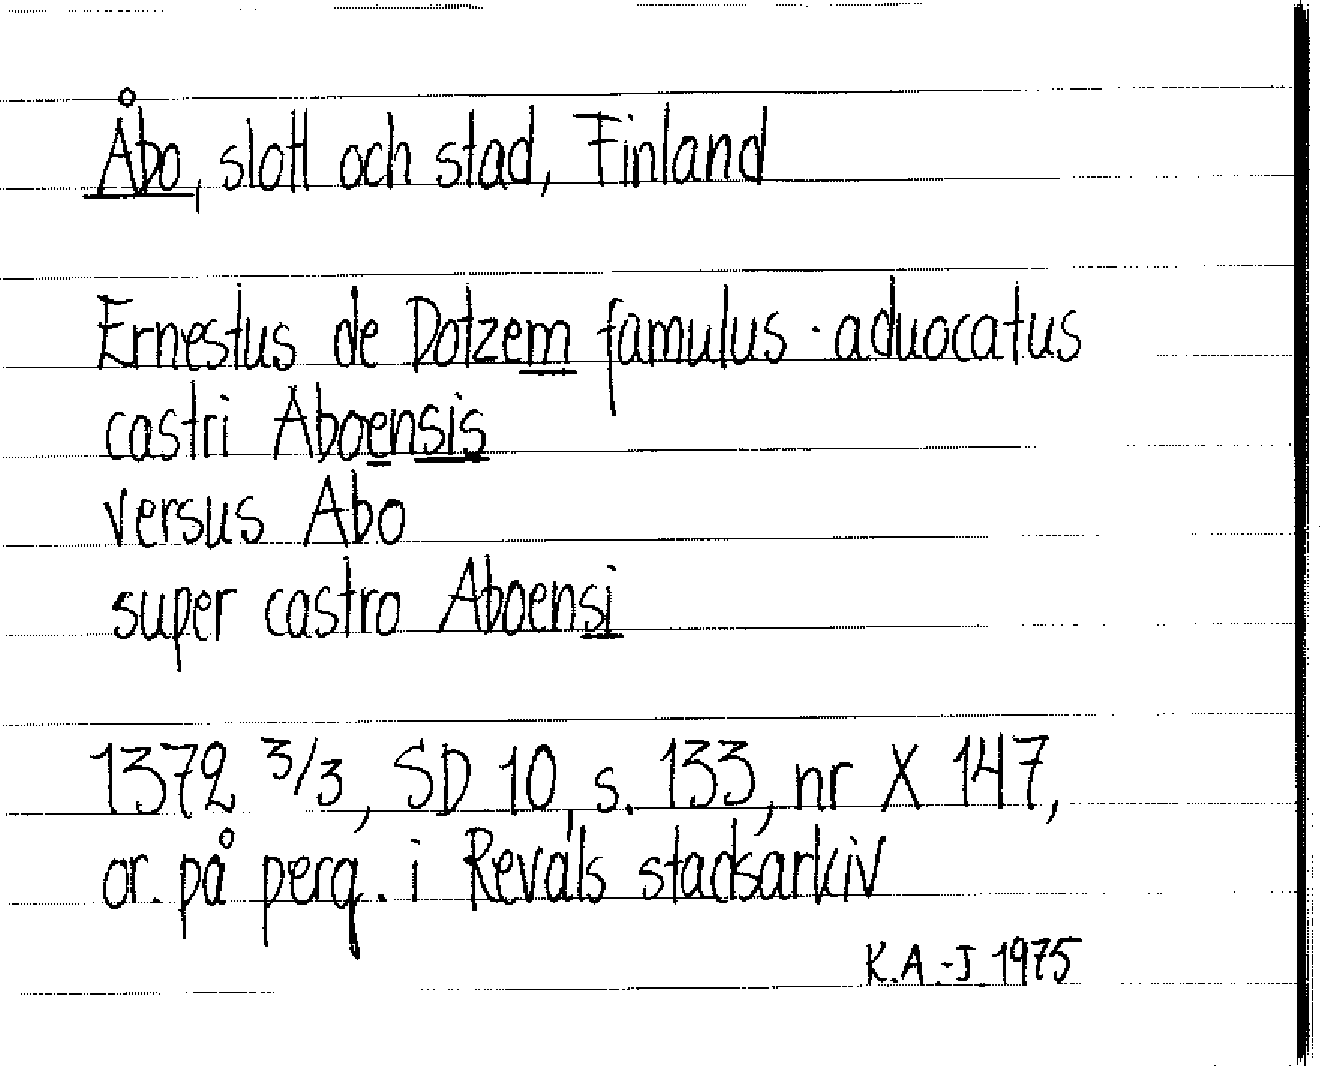 Åbo, slott och stad, Finland
Ernestus de Dotzem famulus · aduocatus
castri Aboensis
versus Abo
super castro Aboensi
1372 3/3, SD 10, s. 133, nr X 147,
or. på perg. i Revals stadsarkiv
K.A.-J 1975